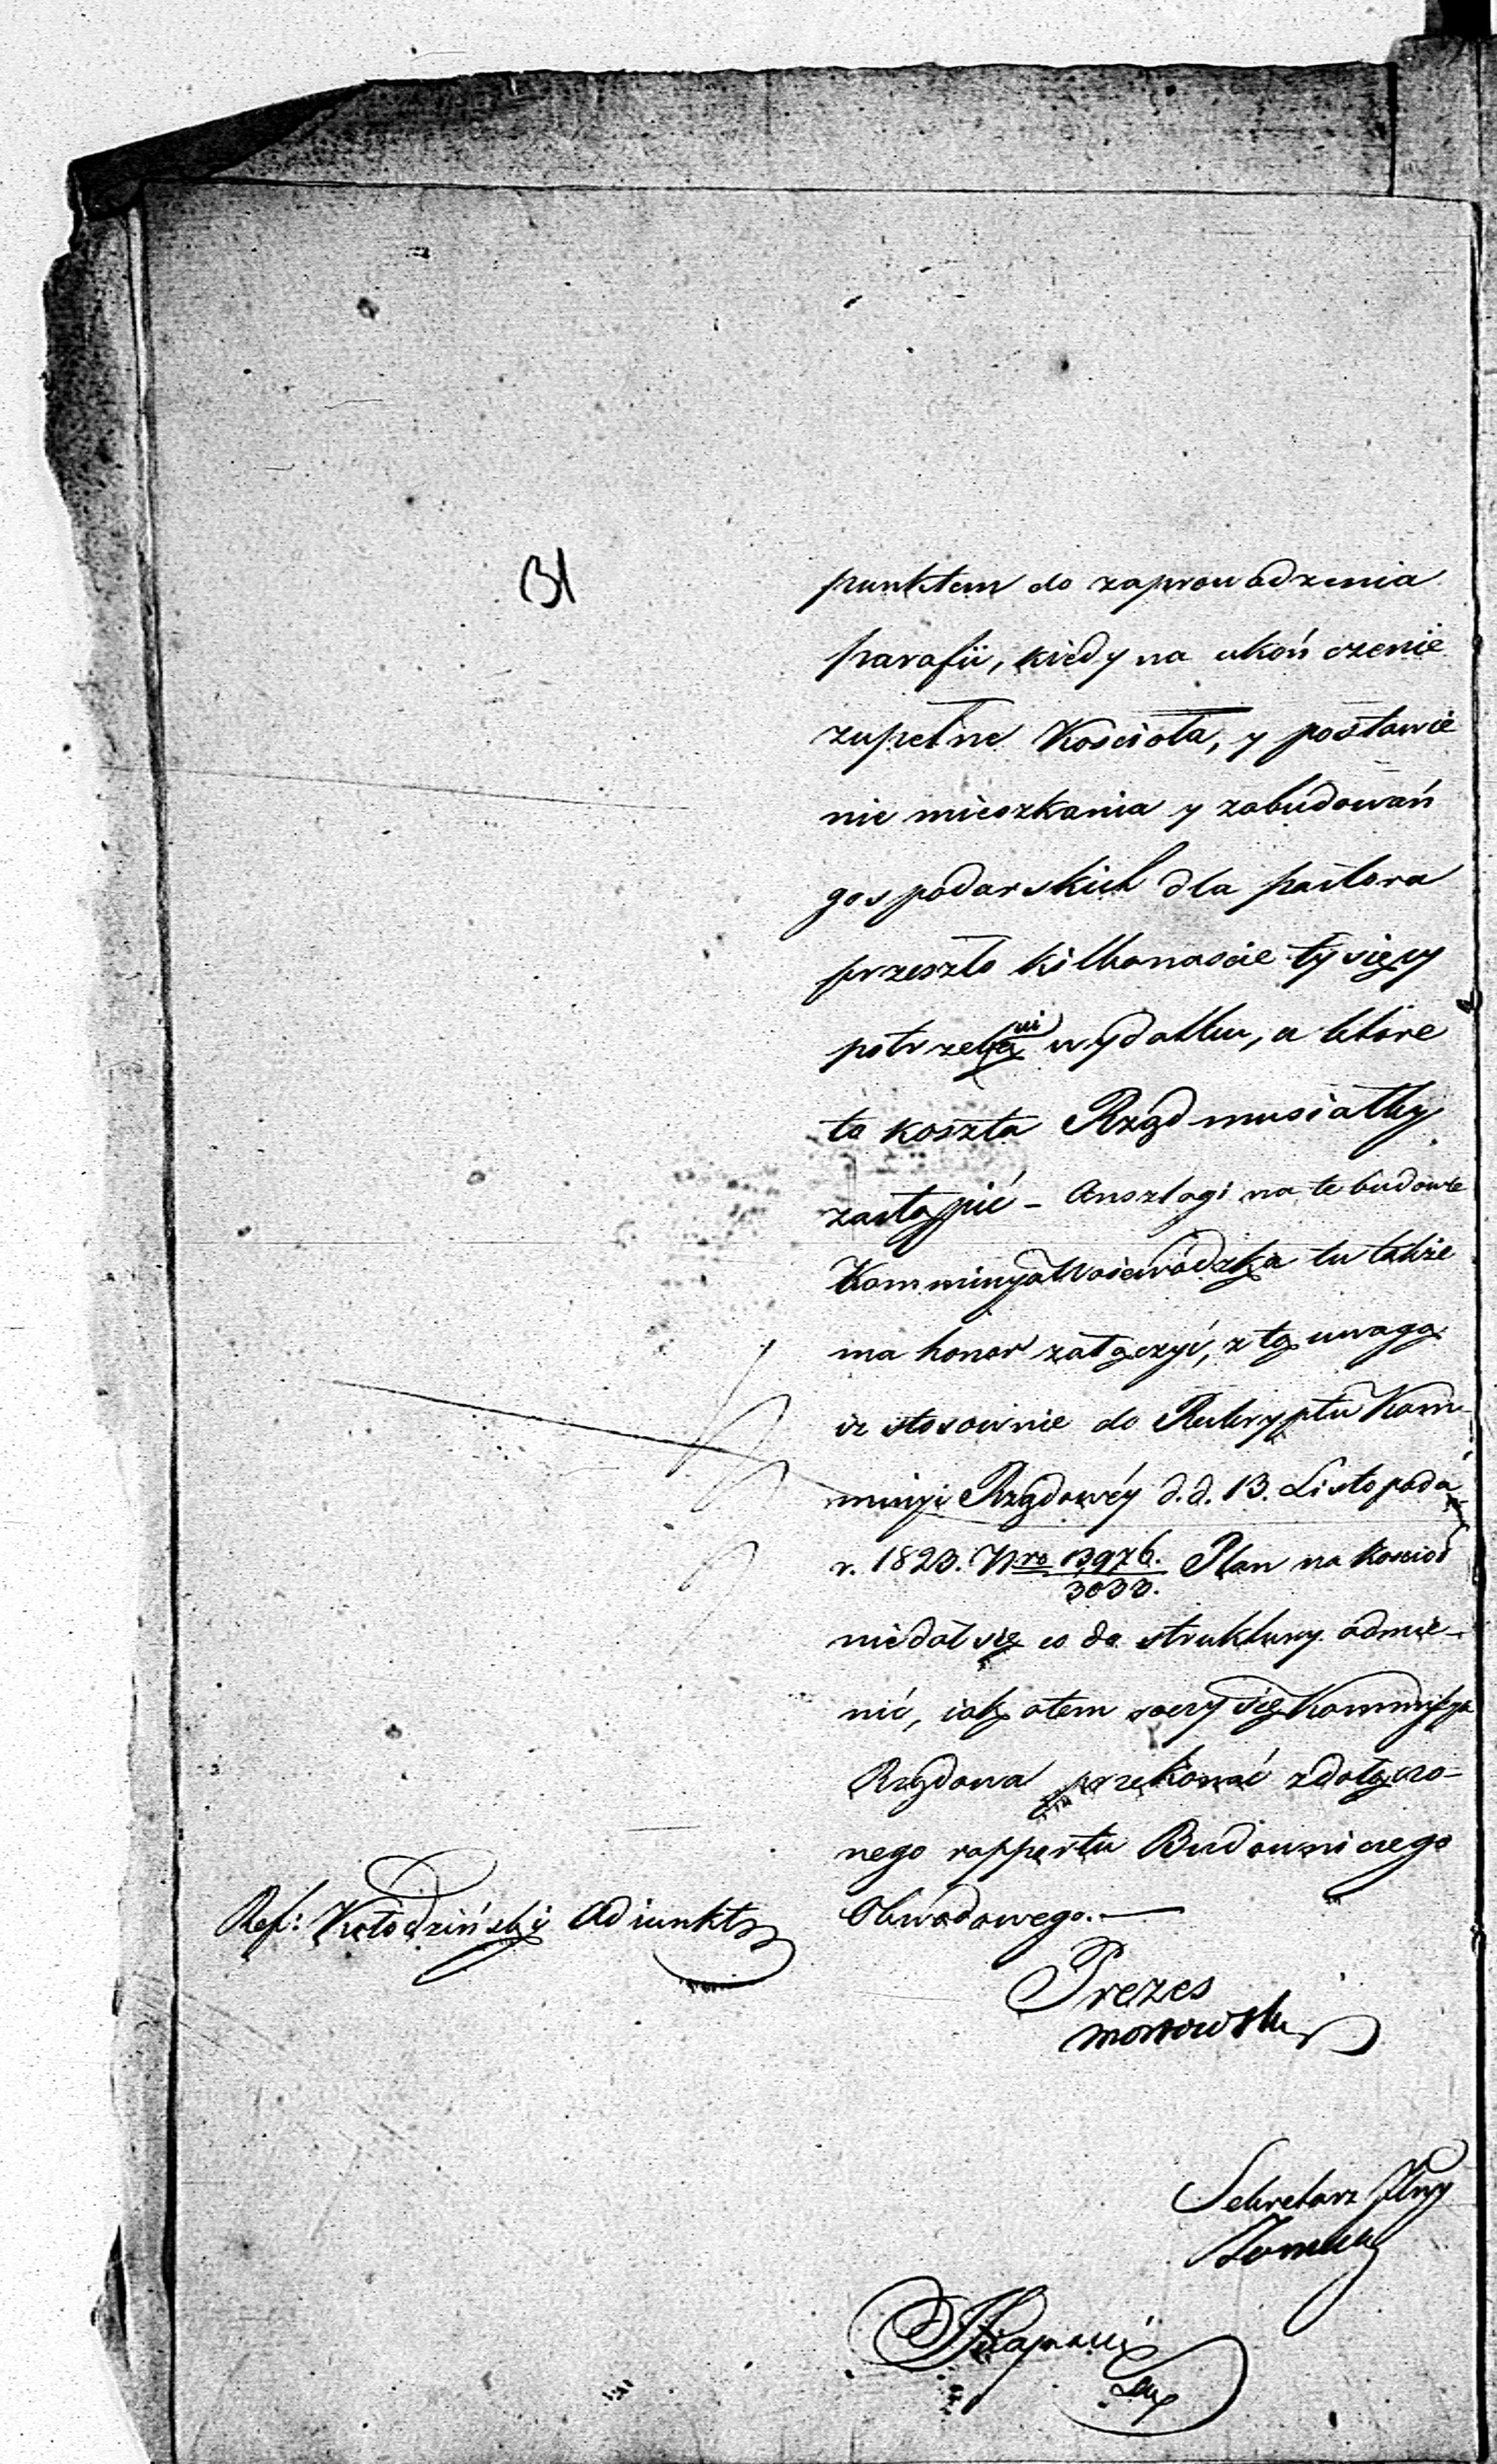 31
punktem do zaprowadzenia
parafii, kiedy na ukończenie
zupełne Kościoła, y postawie
nie mieszkania y zabudowań
gospodarskich dla pastora
przeszło kilkanaście tysięcy
potrzeba wydatku, a które
to koszta Rząd musiałby
zastąpić – Anszlagi na te budowle
Kommissya Woiewódzka tu także
ma honor załączyć, z tą uwagą
iż stosownie do Reskryptu Kom-
missyi Rządowéy d. d. 13. Listopada
r. 1823. Nro 13976./3033. Plan na Kościoł
niedał się co do struktury odmie-
nić, iak o tem raczy się Kommissya
Rządowa przekonać z dołączo-
nego rapportu Budowniczego
Obwodowego. —
Ref: Kołodziński Adiunkt
Prezes
Sekretarz Jlny